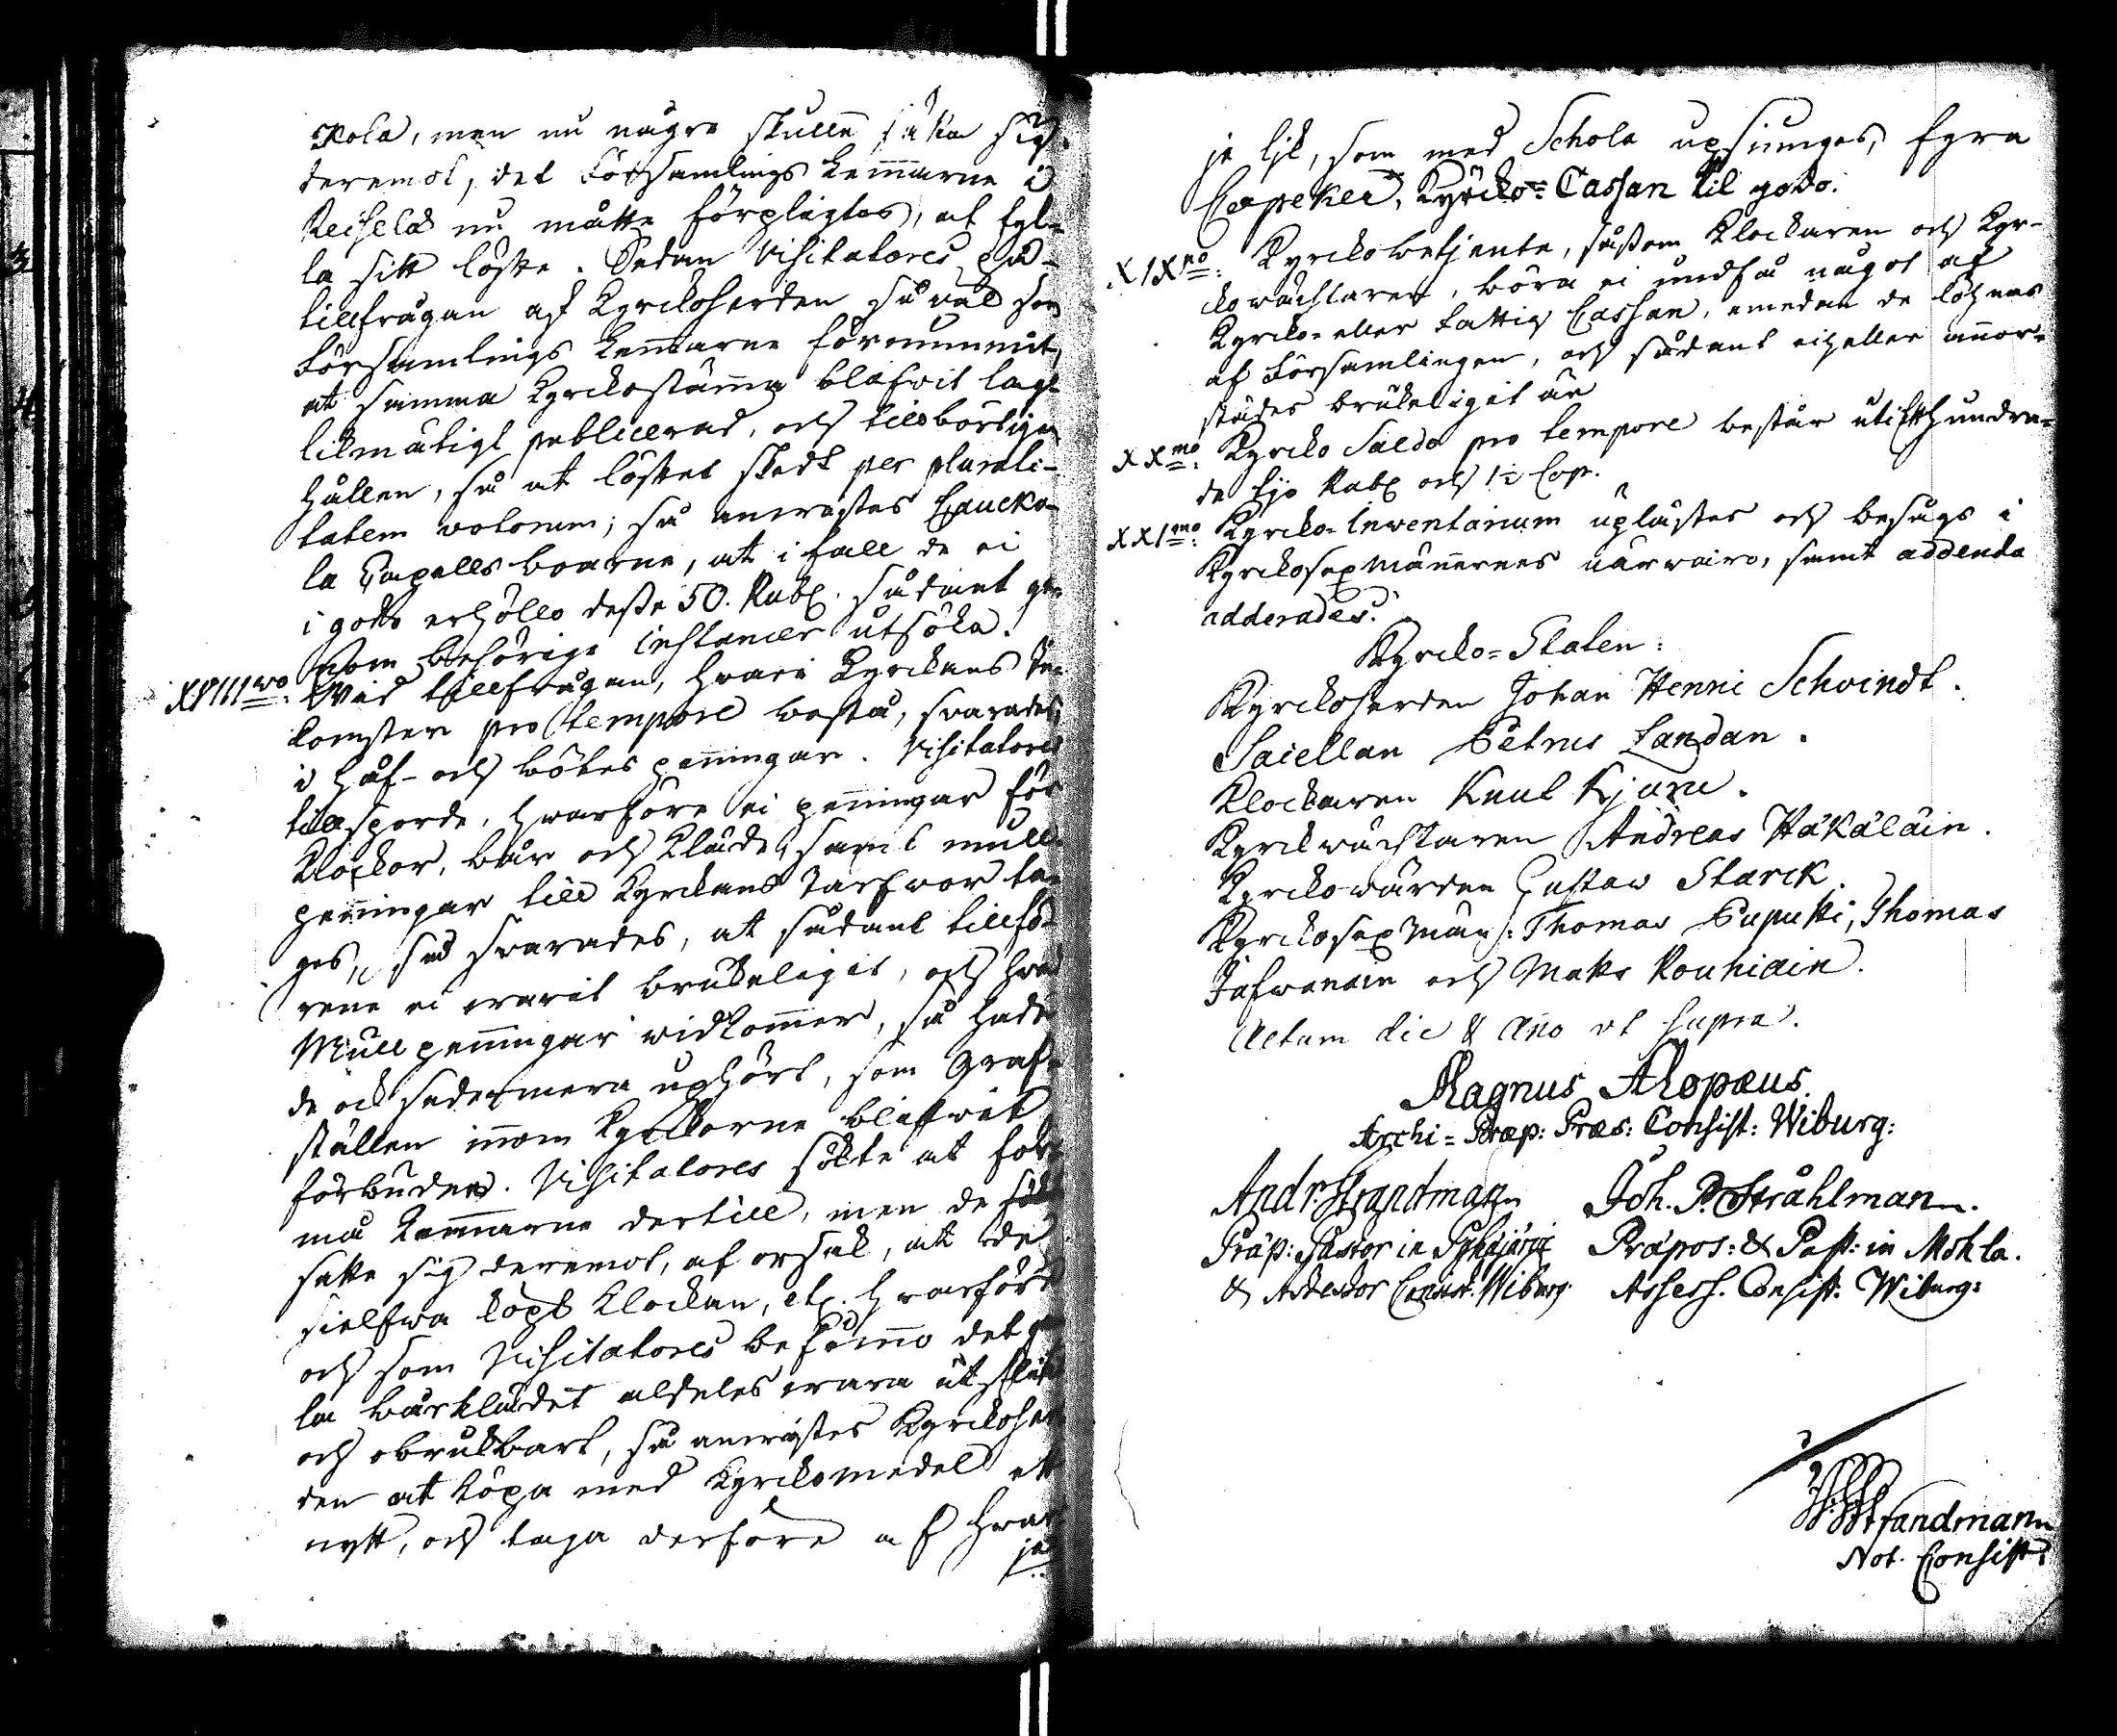 Kola, men nu någre skulle sätta sig
deremot, det Församlings Lemmarne i
Reisela nu måtte förpligtas, at fyl-
la sitt löfte. Sedan Visitatores på
tillfrågan af Kyrckoherden så väl som
Församlings Lemmarne förnummit,
at samma Kyrckostämma blifvit lag-
likmätigt publicerad, och tillbörligen
hållen, så at löftet skedt per plurali-
tatem votorum; så anvistes Caucko-
la Capells boarne, at i fall de ei
i godo erhölle desse 50. Rubl. sådant ge-
nom behörige instancer utsöka.
XVIIIvo: Wid tillfrågan, hvari Kyrckans In-
komster pro tempore bestå, svarades,
i håf- och böters penningar. Visitatores
tillsporde, hvarföre ei penningar för
Klockor, bår och Kläde, samt mull-
penningar till Kyrckans tarfvor ta-
ges, så svarades, at sådant tillfö-
rene ei varit brukeligit, och hvad
Mullpenningar vidkommer, så hade
de ock sedermera uphört, som Graf-
ställen innom Kyrckorne blifvit
förbuden. Visitatores sökte at för-
må Lemmarne dertill, men de
satte sig deremot, af orsak, at de
sielfva köpt Klockan, etc. hvarföre
och som Visitatores befunno det gam
la bårklädet aldeles vara utslitit
och obrukbart, så anvistes Kyrckoher
den at köpa med Kyrckomedel ett
nytt, och taga derföre af hvar
je
je lik, som med Schola upsiunges, fyra
Copeker, Kyrcko-Cassan til godo.
XIXno: Kyrckobetjente, såsom Klockaren och Kyr-
ckowächtaren, böra ei undfå något af
Kyrcko- eller Fattig Cassan, emedan de löhnas
af Församlingen, och sådant eiheller annor-
städes brukeligit är
XXmo: Kyrcko Saldo pro tempore består uti Etthundra-
de tjo Rubl och 1½ Cop.
XXImo: Kyrcko-Inventarium uplästes och besågs i
Kyrckosexmännernes närvaro, samt addenda
adderades.
Kyrcko-Staten:
Kyrckoherden Johan Henric Schvindt.
Sacellan Petrus Landan.
Klockaren Knut Kjuru.
Kyrckwächtaren Andreas Häkäläin.
Kyrckowärden Gustaw Starck.
Kyrckosexmän: Thomas Puputti, Thomas
Jäfwanain och Mats Rouhiain.
Actum die & Año ut supra.
Magnus Alopæus.
Archi-Præp: Præs: Consist: Wiburg:
Andr. Strandmann
Präp: Pastor in Pyhäjärvi
& Assessor Consist. Wiburg.
Joh. P. Stråhlman.
Präpos: & Past: in Mohla.
Assess. Consist. Wiburg:
Strandmann
Not. Consist: